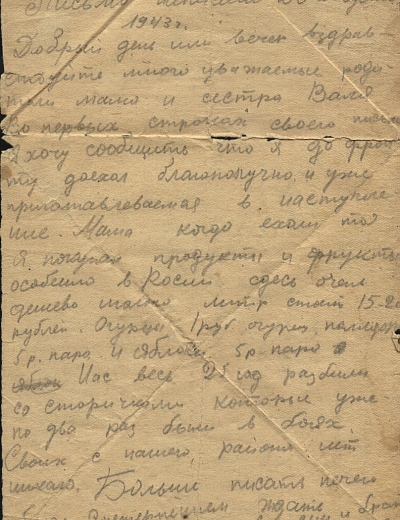 Письмо
1943 г.
Добрый день или вечер вздрав-
ствуйте много уважаемые роди
тели мама и сестра Валя
Во первых строках своего письма
Я хочу сообщить что я до фрон
ту доехал благополучно и уже
приготавливаемая в наступле
ние. Мама когда ехали то
Я покупал продукты и фрукты
особено в Росии сдесь очен
дешево литр стоит 15-20
рублей. Огурци 1 руб огурец, помидоры
5 р. пара и яблоки 5 р пара
Нас весь 25 год разбили
со старичками которые уже
по два раз были в боях.
Своих с нашего района нет
никого. Больше писать нечего
ждать